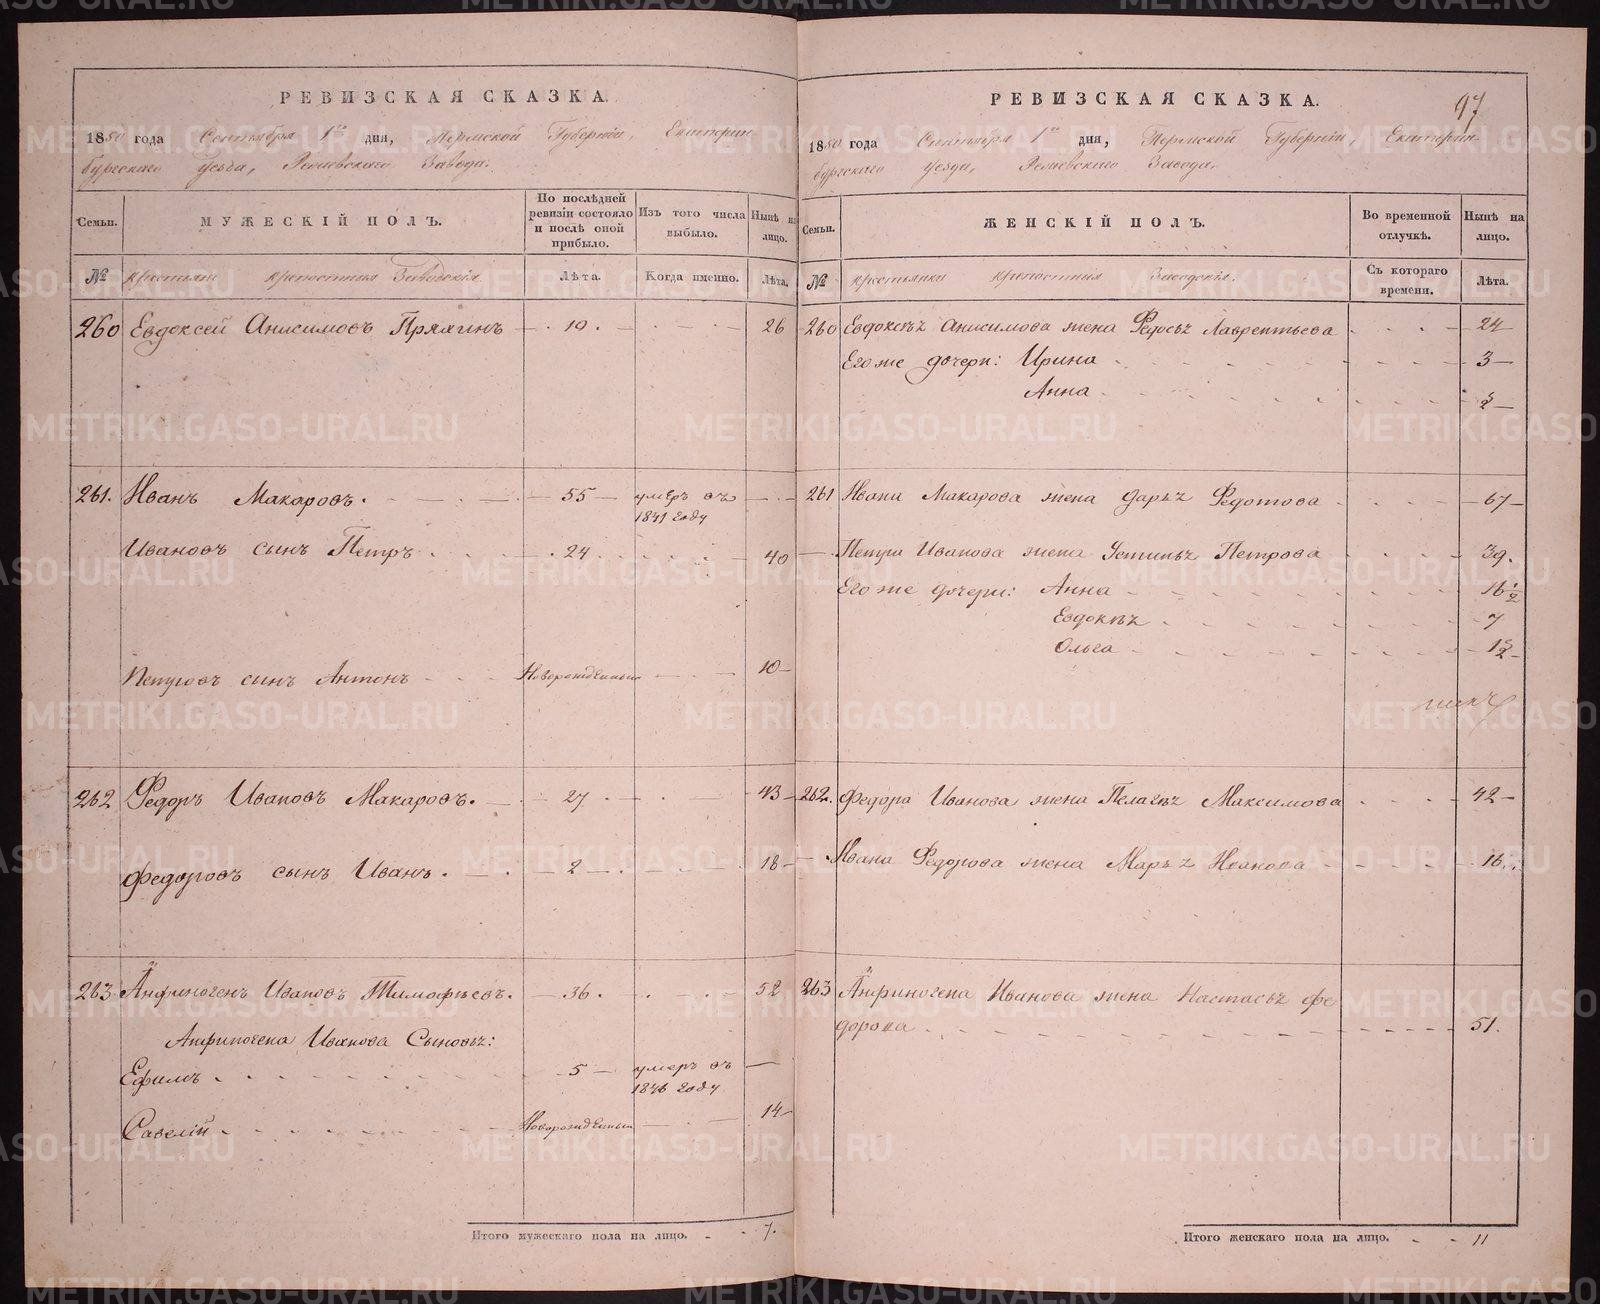 97
РЕВИЗСКАЯ СКАЗКА.
1850 года Сентября 1го дня, Пермской Губерніи, Екатерин-
бургскаго Уезда, Ревдинскаго Завода.
Семьи. МУЖЕСКІЙ ПОЛЪ. По послѣдней ревизіи состояло и послѣ оной прибыло. Изъ того числа выбыло. Нынѣ на лицо.
№ крестьяне крепостныя Заводскія. Лѣта. Когда именно. Лѣта.
260 Евдоксей Анисимовъ Пряхинъ 10. 26
261. Иванъ Макаровъ. 55 умеръ въ
1841 году
Ивановъ сынъ Петръ 24 40
Петровъ сынъ Антонъ Новорожденный 10
262 Федоръ Ивановъ Макаровъ. 27 43
Федоровъ сынъ Иванъ. 2 18
263 Анфиногенъ Ивановъ Тимофѣевъ. 36. 52
Анфиногена Иванова Сыновья:
Ефимъ 5 умеръ въ
1846 году
Савелій Новорожденный 14
Итого мужескаго пола на лицо. 7.
РЕВИЗСКАЯ СКАЗКА.
1850 года Сентября 1го дня, Пермской Губерніи, Екатерин-
бургскаго Уезда, Завода.
Семьи. ЖЕНСКІЙ ПОЛЪ. Во временной отлучкѣ. Нынѣ на лицо.
№ крестьянки крепостныя Заводскія. Съ котораго времени. Лѣта.
260 Евдоксея Анисимова жена Федосья Лаврентьева 24
Его же дочери: Ирина 3
Анна
261 Ивана Макарова жена Дарья Федотова 67
Петра Иванова жена Устинья Петрова 39.
Его же дочери: Анна 16 1/2
Евдокия 7
Ольга
262. Федора Иванова жена Пелагея Максимова 42
Ивана Федорова жена Марья Иванова 16.
263 Анфиногена Иванова жена Настасья Фе-
дорова 51.
Итого женскаго пола на лицо. 11
METRIKI.GASO-URAL.RU